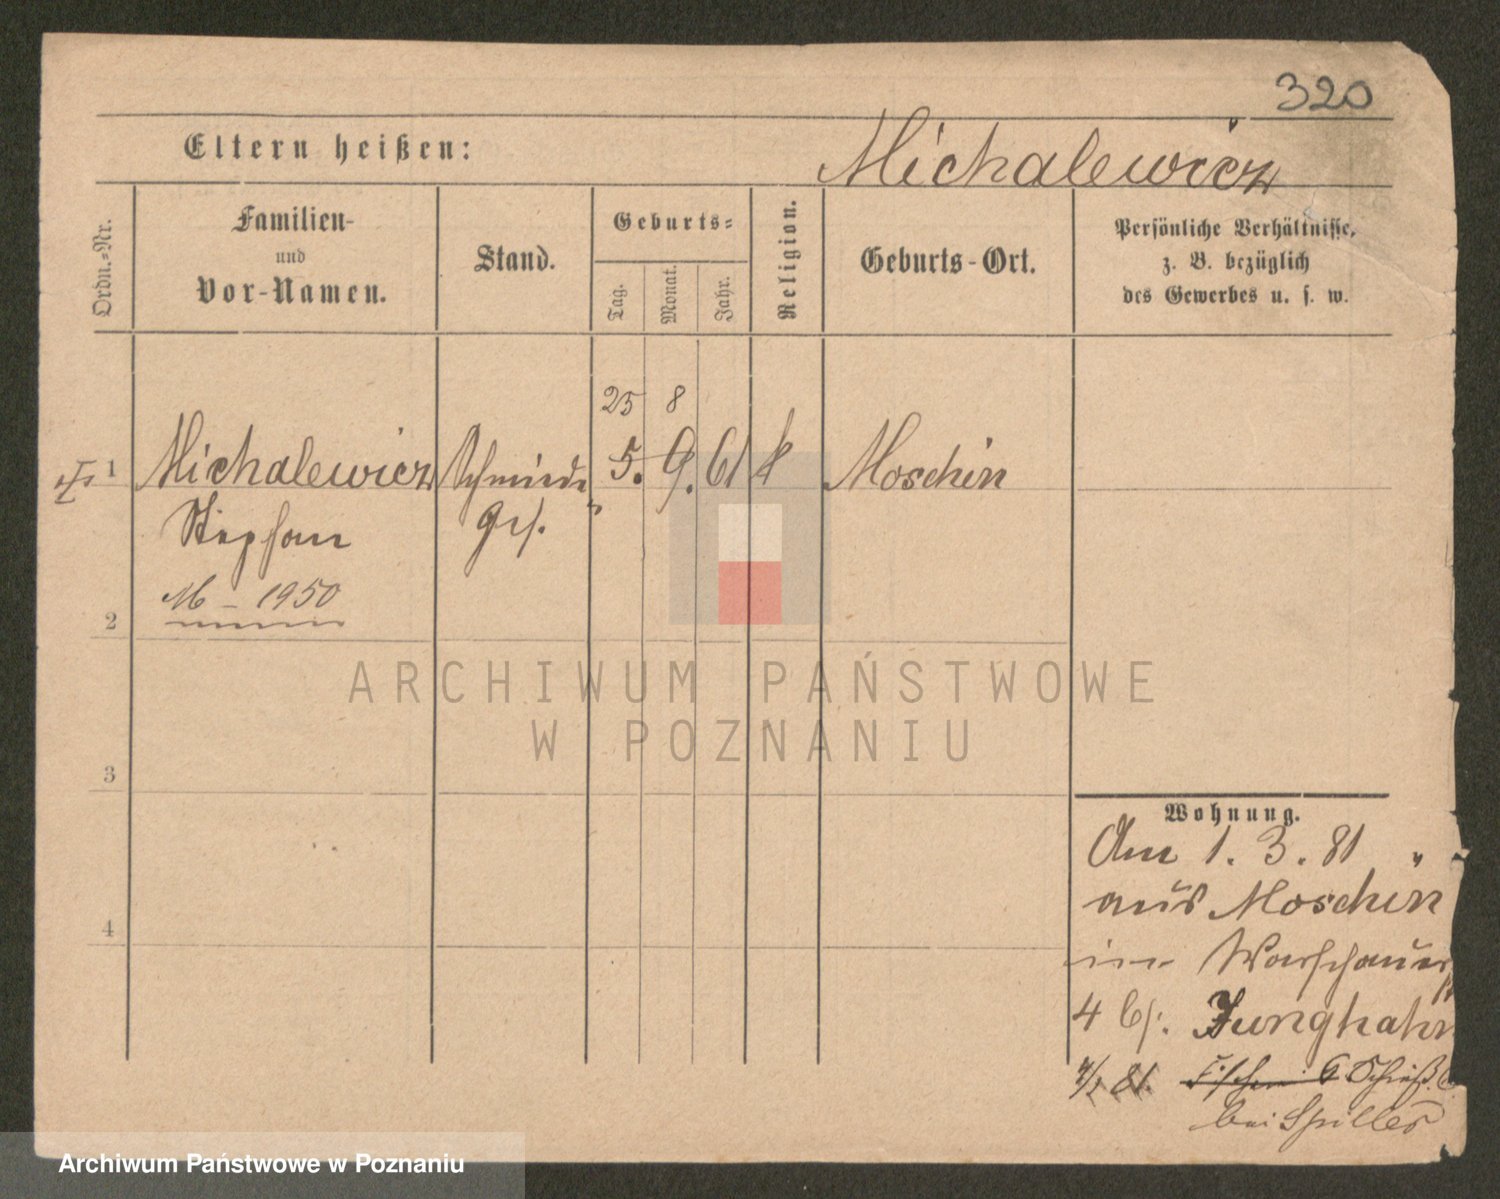 320
Eltern heißen:
Michalewicz
Ordn.-Nr.
Familien-
und
Vor-Namen.
Stand.
Geburts-
Tag.
Monat.
Jahr.
Religion.
Geburts-Ort.
Persönliche Verhältnisse,
z. B. bezüglich
des Gewerbes u. s. w.
25 8
1 Michalewicz Schmiede 5. 9. 61 k Moschin
Stephan ges.
M – 1950
2
ARCHIWUM PAŃSTWOWE
W POZNANIU
3
Wohnung.
Am 1. 3. 81
aus Moschin
4
in Warschauer
4 b/. Junghahn
81. Fischerei 6 Schieß
bei Spiller
Archiwum Państwowe w Poznaniu